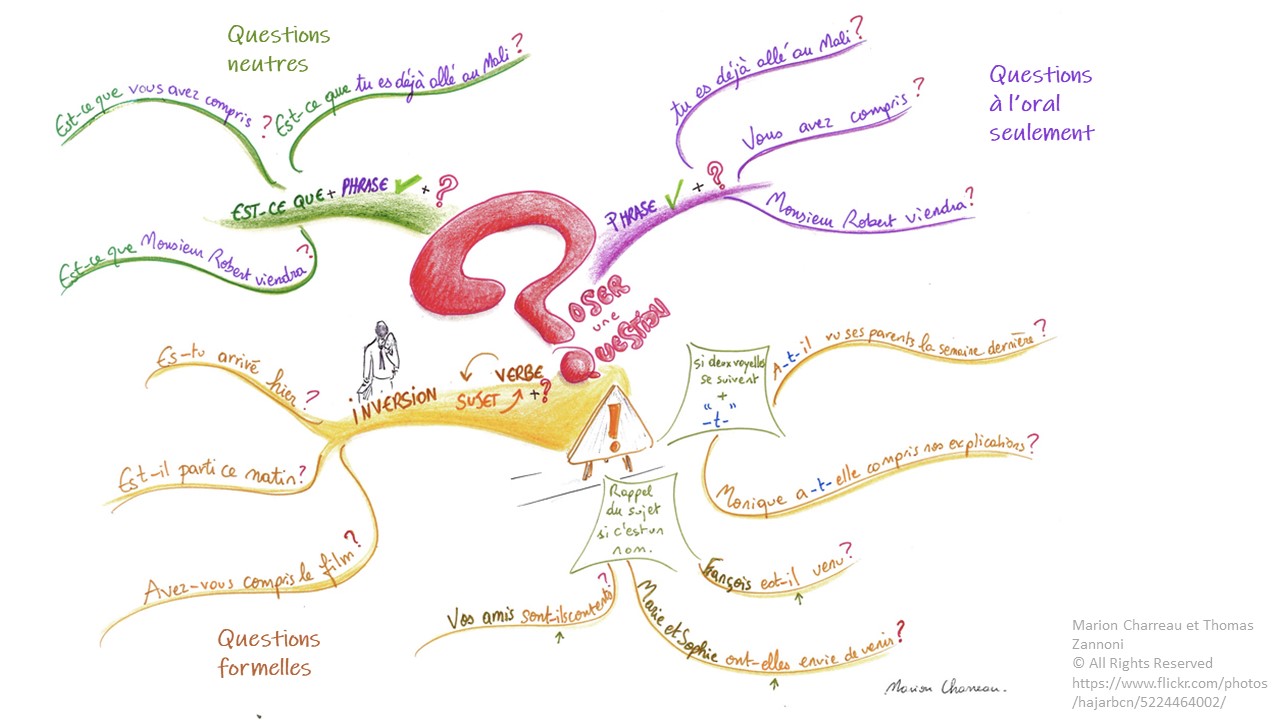 Questions
neutres
Est-ce que vous avez compris ?
Est-ce que tu es déjà allé au Mali ?
EST-CE QUE + PHRASE + ?
Est-ce que Monsieur Robert viendra ?
tu es déjà allé au Mali ?
Vous avez compris ?
PHRASE + ?
Monsieur Robert viendra ?
Questions
à l'oral
seulement
OSER
une
QUESTION
Es-tu arrivé hier ?
INVERSION
VERBE
SUJET + ?
Est-il parti ce matin ?
Avez-vous compris le film ?
Questions
formelles
!
si deux voyelles
se suivent
+
"-t-"
A-t-il vu ses parents la semaine dernière ?
Monique a-t-elle compris nos explications ?
Rappel
du sujet
si c'est un
nom.
François est-il venu ?
Marie et Sophie ont-elles envie de venir ?
Vos amis sont-ils contents ?
Marion Charreau.
Marion Charreau et Thomas
Zannoni
© All Rights Reserved
https://www.flickr.com/photos
/hajarbcn/5224464002/